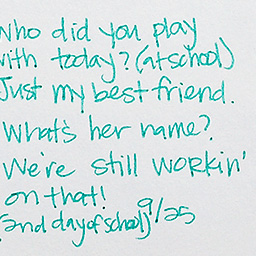 Who did you play
with today? (at school)
Just my best friend.
What's her name?
We're still workin'
on that!
(2nd day of school) 9/25